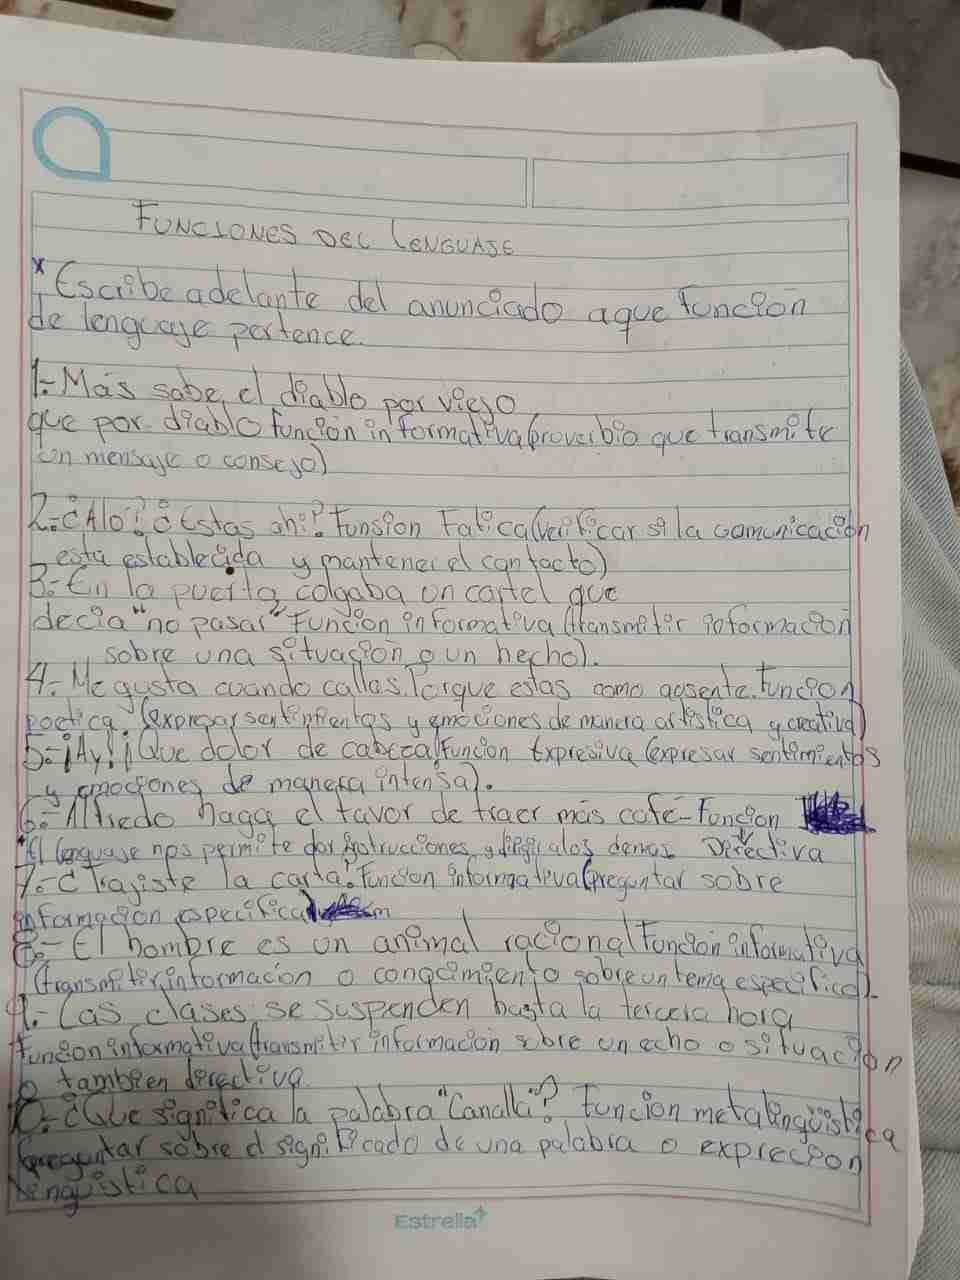 FUNCIONES DEL LENGUAJE
* Escribe adelante del anunciado a que función
de lenguaje pertence.
1.- Más sabe el diablo por viejo
que por diablo función informativa (proverbio que transmite
un mensaje o consejo)
2.- ¿Aló? ¿Estas ahi? Funsion Fatica (verificar si la comunicación
esta establecida y mantener el contacto)
3.- En la puerta colgaba un cartel que
decia "no pasar" Funcion informativa (transmitir informacion
sobre una situación o un hecho).
4.- Me gusta cuando callas. Porque estas como ausente. Funcion
poetica. (expresar sentimientos y emociones de manera artistica y creativa)
5.- ¡Ay! ¡Que dolor de cabeza! Funcion Expresiva (expresar sentimientos
y emociones de manera intensa).
6.- Alfredo haga el favor de traer más café - Funcion
*El lenguaje nos permite dar instrucciones y dirigir a los demas Directiva
7.- ¿Trajiste la carta? Funcion informativa (preguntar sobre
informacion especifica)
8.- El hombre es un animal racional Funcion informativa
(transmitir informacion o conocimiento sobre un tema especifico)-
9.- Las clases se suspenden hasta la tercera hora
Funcion informativa (transmitir informacion sobre un echo o situacion
o tambien directiva.
10.- ¿Que significa la palabra "Canalla"? Funcion metalingüistica
(preguntar sobre el significado de una palabra o exprecion
lingüistica
Estrella